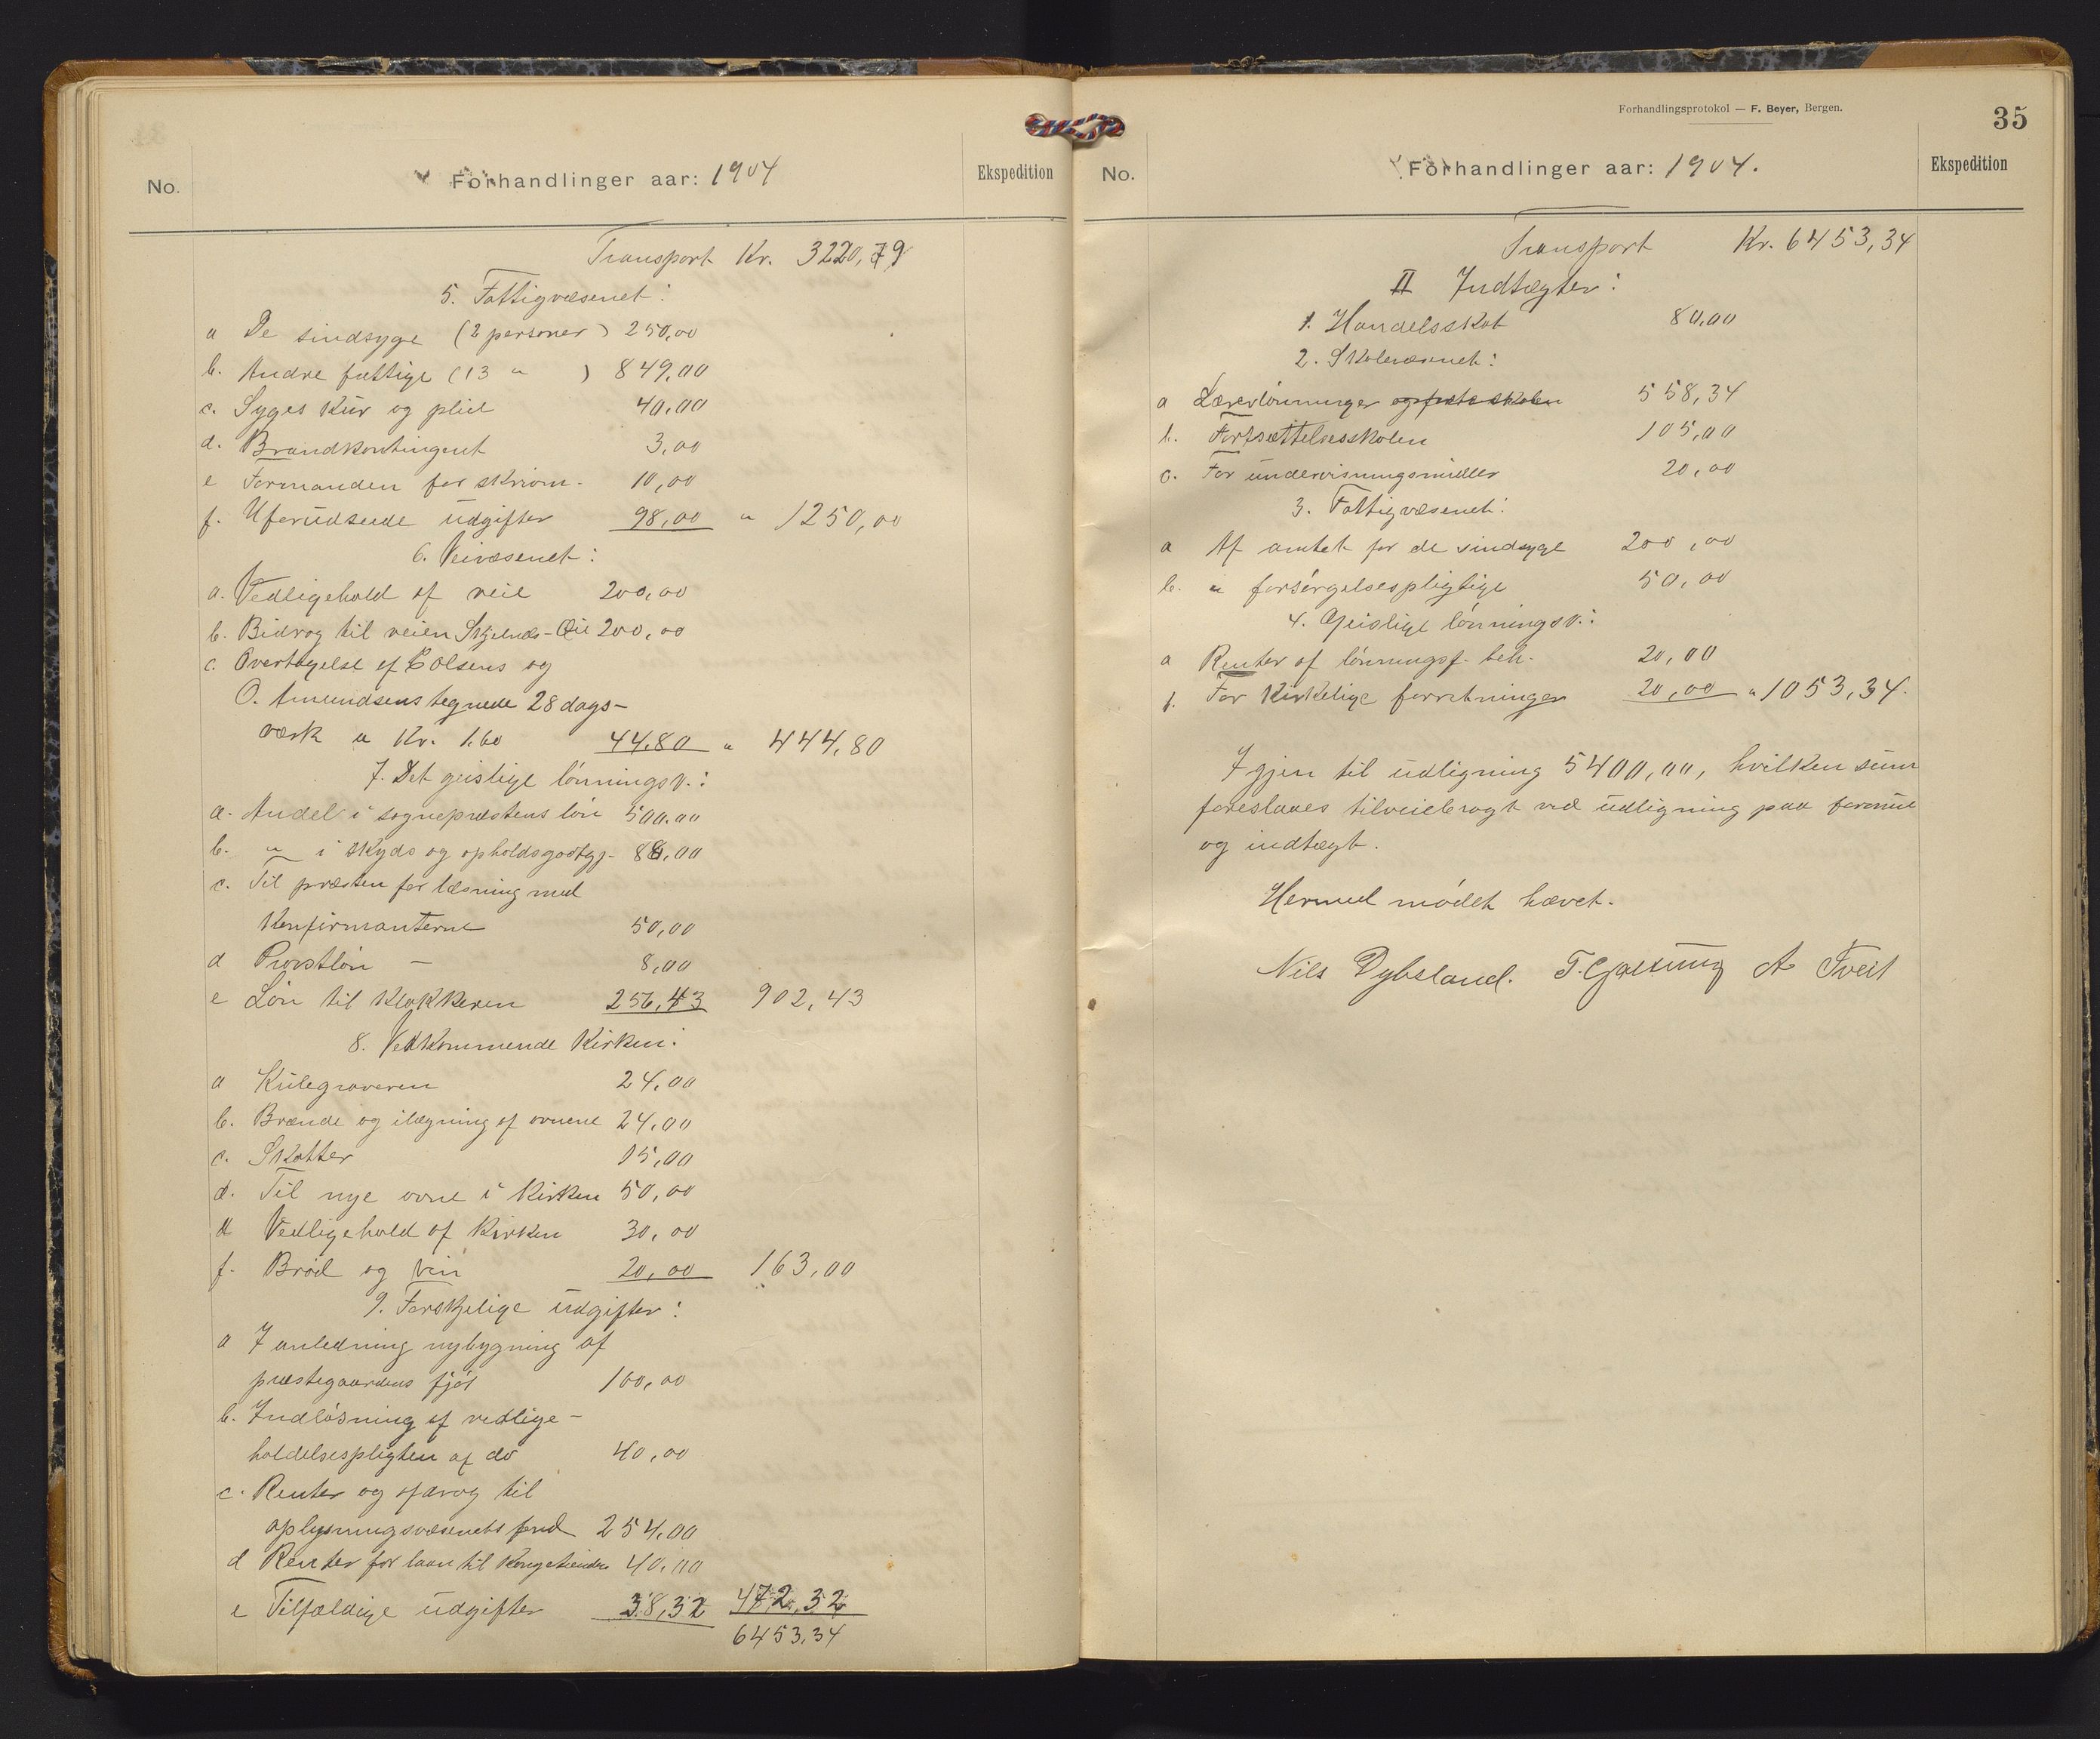 No.
Forhandlinger aar: 1904
Ekspedition
Transport Kr. 3220,79
5. Fattigvæsenet:
a De sindsyge (2 personer) 250,00
b. Andre fattige (13 " ) 849,00
c. Syges kur og pleie 40,00
d. Brandkontingent 3,00
e Formanden for skrivm. 10,00
f. Uforudseede udgifter 98,00 " 1250,00
6. Veivæsenet:
a. Vedligehold af veie 200,00
b. Bidrag til veien 200,00
c. Overtagelse af Colsens og
O. Amundsens tegnede 28 dags-
værk a Kr. 1.60 44.80 " 444,80
7. Det geistlige lønningsv.:
a. Andel i sogneprestens løn 500.00
b. " i skyds og opholdsgodtgj. 88,00
c. Til præsten for læsning med
konfirmanterne 50,00
d Provstløn - 8,00
e Løn til klokkeren 256,43 902,43
8. Vedkommende Kirken:
a Kulegraveren 24.00
b. Brænde og ilægning af ovnene 24,00
c. Skatter 15,00
d. Til nye ovne i kirken 50,00
e Vedligehold af kirken 30,00
f. Brød og vin 20,00 163,00
9. Forskjelige udgifter:
a I anledning nybygning af
præstegaardens fjøs 100,00
b. Indløsning af vedlige-
holdelsespligten af do 40,00
c. Renter og afdrag til
oplysningsvæsenets fond 254,00
d Renter for laan til Kongetienden 40,00
e Tilfældige udgifter 38,32 472,32
6453,34
Forhandlingsprotokol — F. Beyer, Bergen.
35
No.
Forhandlinger aar: 1904.
Ekspedition
Transport Kr. 6453,34
II Indtægter:
1. Handelsskat 80,00
2. Skolevæsenet:
a Lærerlønninger og faste skolen 558,34
b. Fortsættelsesskolen 105,00
c. For undervisningsmidler 20,00
3. Fattigvæsenet:
a Af amtet for de sindsyge 200,00
b. " forsørgelsespligtige 50,00
4. Geislige lønningsv.:
a Renter af lønningsf. beh. 20,00
b. For kirkelige forretninger 20,00 " 1053,34.
Igjen til udligning 5400,00, hvilken sum
foreslaaes tilveiebragt ved udligning paa formue
og indtægt.
Hermed mødet hævet.
Nils Dybsland. T. Gjøsung A Tveit